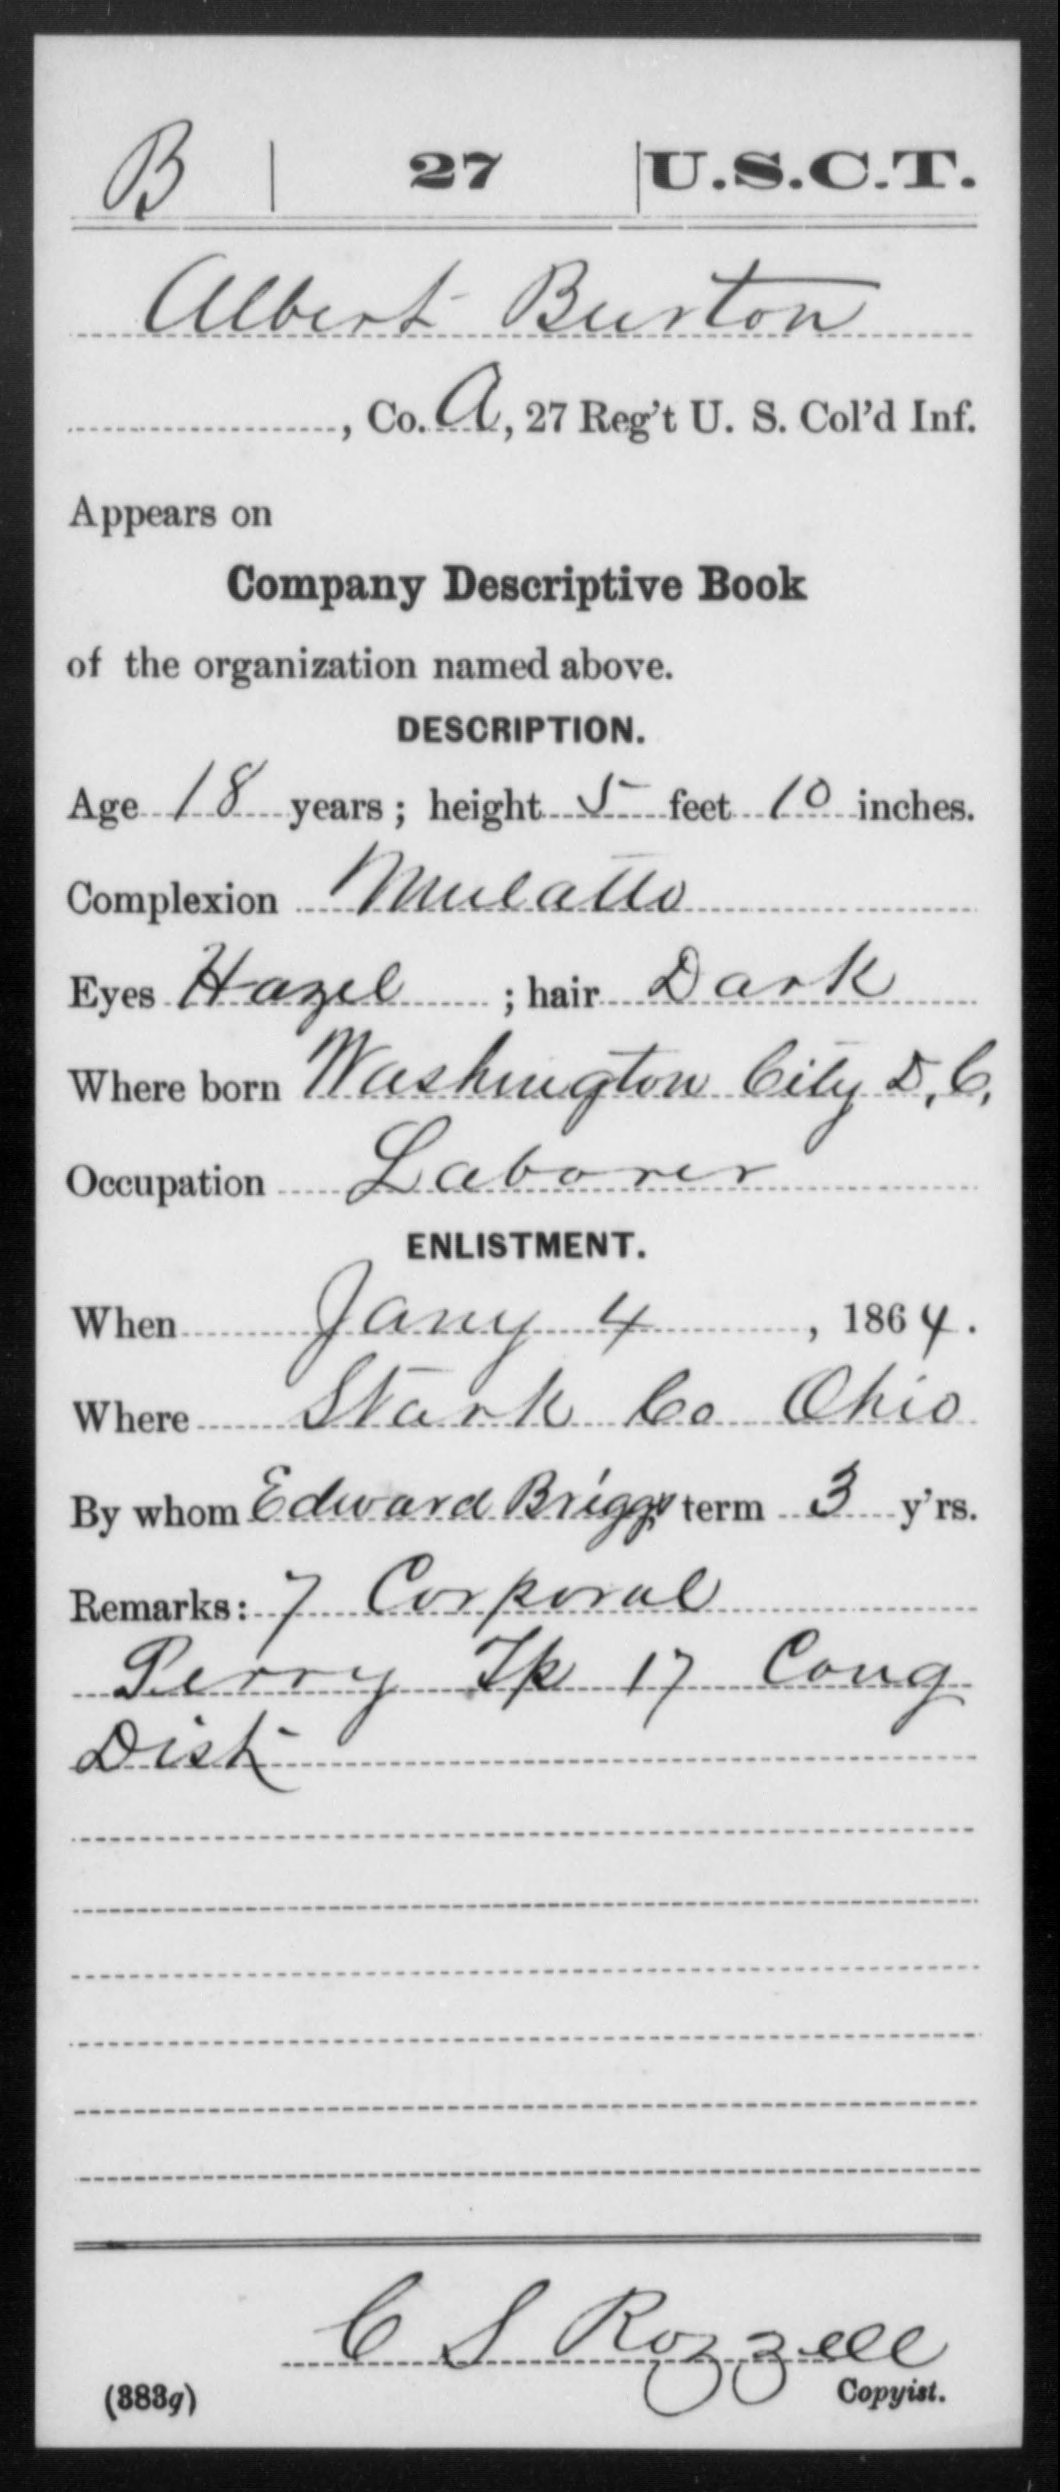 B | 27 | U.S.C.T.
Albert Burton
, Co. A, 27 Reg't U. S. Col'd Inf.
Appears on
Company Descriptive Book
of the organization named above.
DESCRIPTION.
Age 18 years; height 5 feet 10 inches.
Complexion Mulatto
Eyes Hazel ; hair Dark
Where born Washington City D.C.
Occupation Laborer
ENLISTMENT.
When Jany 4, 1864.
Where Stark Co Ohio
By whom Edward Briggs term 3 y'rs.
Remarks: 7 Corporal
Perry Tp 17 Cong
Dist
C S Rozzell
(383g) Copyist.